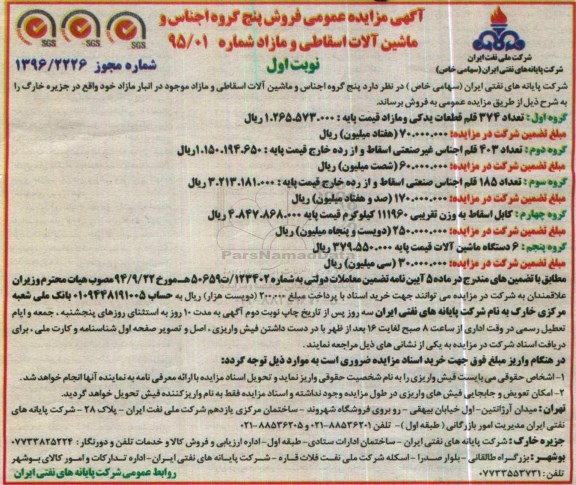 آگهی مزایده عمومی فروش پنج گروه اجناس و
ماشین آلات اسقاطی و مازاد شماره ۹۵/۰۱
نوبت اول
شماره مجوز ۱۳۹۶/۲۲۲۶
شرکت ملی نفت ایران
شرکت پایانه های نفتی ایران (سهامی خاص)
SGS SGS SGS
شرکت پایانه های نفتی ایران (سهامی خاص) در نظر دارد پنج گروه اجناس و ماشین آلات اسقاطی و مازاد موجود در انبار مازاد خود واقع در جزیره خارگ را
به شرح ذیل از طریق مزایده عمومی به فروش برساند.
گروه اول: تعداد ۳۷۴ قلم قطعات یدکی ومازاد قیمت پایه : ۱.۲۶۵.۵۷۳.۰۰۰ ریال
مبلغ تضمین شرکت در مزایده: ۷۰.۰۰۰.۰۰۰ (هفتاد میلیون) ریال
گروه دوم: تعداد ۴۰۳ قلم اجناس غیرصنعتی اسقاط و از رده خارج قیمت پایه : ۱.۱۵۰.۱۹۴.۶۵۰ ریال
مبلغ تضمین شرکت در مزایده: ۶۰.۰۰۰.۰۰۰ (شصت میلیون) ریال
گروه سوم : تعداد ۱۸۵ قلم اجناس صنعتی اسقاط و از رده خارج قیمت پایه : ۳.۲۱۳.۱۸۱.۰۰۰ ریال
مبلغ تضمین شرکت در مزایده: ۱۷۰.۰۰۰.۰۰۰ (صد و هفتاد میلیون) ریال
گروه چهارم : کابل اسقاط به وزن تقریبی ۱۱۱۹۶۰ کیلوگرم قیمت پایه ۴.۸۴۷.۸۶۸.۰۰۰ ریال
مبلغ تضمین شرکت در مزایده: ۲۵۰.۰۰۰.۰۰۰ (دویست و پنجاه میلیون) ریال
گروه پنجم : ۶ دستگاه ماشین آلات قیمت پایه ۳۷۹.۵۵۰.۰۰۰ ریال
مبلغ تضمین شرکت در مزایده: ۳۰.۰۰۰.۰۰۰ (سی میلیون) ریال
مطابق با تضمین های مندرج در ماده ۵ آیین نامه تضمین معاملات دولتی به شماره ۱۲۳۴۰۲/ت۵۰۶۵۹هـ مورخ ۹۴/۹/۲۲ مصوب هیات محترم وزیران
علاقمندان به شرکت در مزایده می توانند جهت خرید اسناد با پرداخت مبلغ ۲۰۰.۰۰۰ (دویست هزار) ریال به حساب ۰۱۰۹۴۴۸۱۹۱۰۰۵ بانک ملی شعبه
مرکزی خارگ به نام شرکت پایانه های نفتی ایران سه روز پس از تاریخ چاپ نوبت دوم آگهی به مدت ۱۰ روز به استثنای روزهای پنجشنبه ، جمعه و ایام
تعطیل رسمی در وقت اداری از ساعت ۸ صبح لغایت ۱۶ بعد از ظهر با در دست داشتن فیش واریزی ، اصل و تصویر صفحه اول شناسنامه و کارت ملی ، برای
دریافت اسناد شرکت در مزایده به یکی از نشانی های ذیل مراجعه نمایند.
در هنگام واریز مبلغ فوق جهت خرید اسناد مزایده ضروری است به موارد ذیل توجه گردد:
۱- اشخاص حقوقی می بایست فیش واریزی را به نام شخصیت حقوقی واریز نماید و تحویل اسناد مزایده با ارائه معرفی نامه به نماینده آنها انجام خواهد شد.
۲- امکان تعویض و جابجایی فیش های واریزی در طول مزایده وجود نداشته و اسناد مزایده فقط به نام واریز کننده فیش تحویل خواهد گردید.
تهران: میدان آرژانتین - اول خیابان بیهقی - رو بروی فروشگاه شهروند - ساختمان مرکزی یازدهم شرکت ملی نفت ایران - پلاک ۲۸ - شرکت پایانه های
نفتی ایران مدیریت امور بازرگانی (طبقه اول) - تلفن : ۸۸۵۳۶۲۰۱-۰۲۱ و ۸۸۵۳۶۲۰۵-۰۲۱
جزیره خارگ: شرکت پایانه های نفتی ایران - ساختمان ادارات ستادی - طبقه اول - اداره ارزیابی و فروش کالا و خدمات تلفن و دورنگار : ۰۷۷۳۳۸۲۵۲۲۴
بوشهر : بزرگراه طالقانی - بلوار صدرا - اسکله شرکت ملی نفت فلات قاره - شرکت پایانه های نفتی ایران - اداره تدارکات و امور کالای بوشهر
تلفن : ۰۷۷۳۳۵۵۳۷۳۱
روابط عمومی شرکت پایانه های نفتی ایران
ParsNamadData